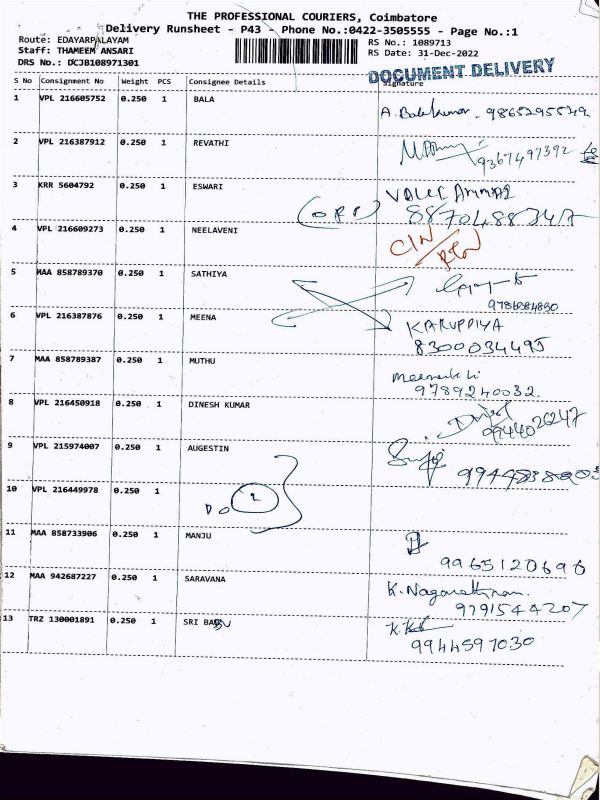 THE PROFESSIONAL COURIERS, Coimbatore
Delivery Runsheet - P43 - Phone No.:0422-3505555 - Page No.:1
Route: EDAYARPALAYAM
Staff: THAMEEM ANSARI
DRS No.: DCJB108971301
RS No.: 1089713
RS Date: 31-Dec-2022
DOCUMENT DELIVERY
S No Consignment No Weight PCS Consignee Details Signature
1 VPL 216605752 0.250 1 BALA A. Balakumar. 9865295529
2 VPL 216387912 0.250 1 REVATHI 9367497392
3 KRR 5604792 0.250 1 ESWARI
8870488347
4 VPL 216609273 0.250 1 NEELAVENI
5 MAA 858789370 0.250 1 SATHIYA
6 VPL 216387876 0.250 1 MEENA KARUPPIYA
8300034495
7 MAA 858789387 0.250 1 MUTHU
9789240032.
8 VPL 216450918 0.250 1 DINESH KUMAR
9944026247
9 VPL 215974007 0.250 1 AUGESTIN
10 VPL 216449978 0.250 1 Do 2
11 MAA 858733906 0.250 1 MANJU
9965120696
12 MAA 942687227 0.250 1 SARAVANA K. Nagarathinam.
9791544207
13 TRZ 130001891 0.250 1 SRI
9944597030